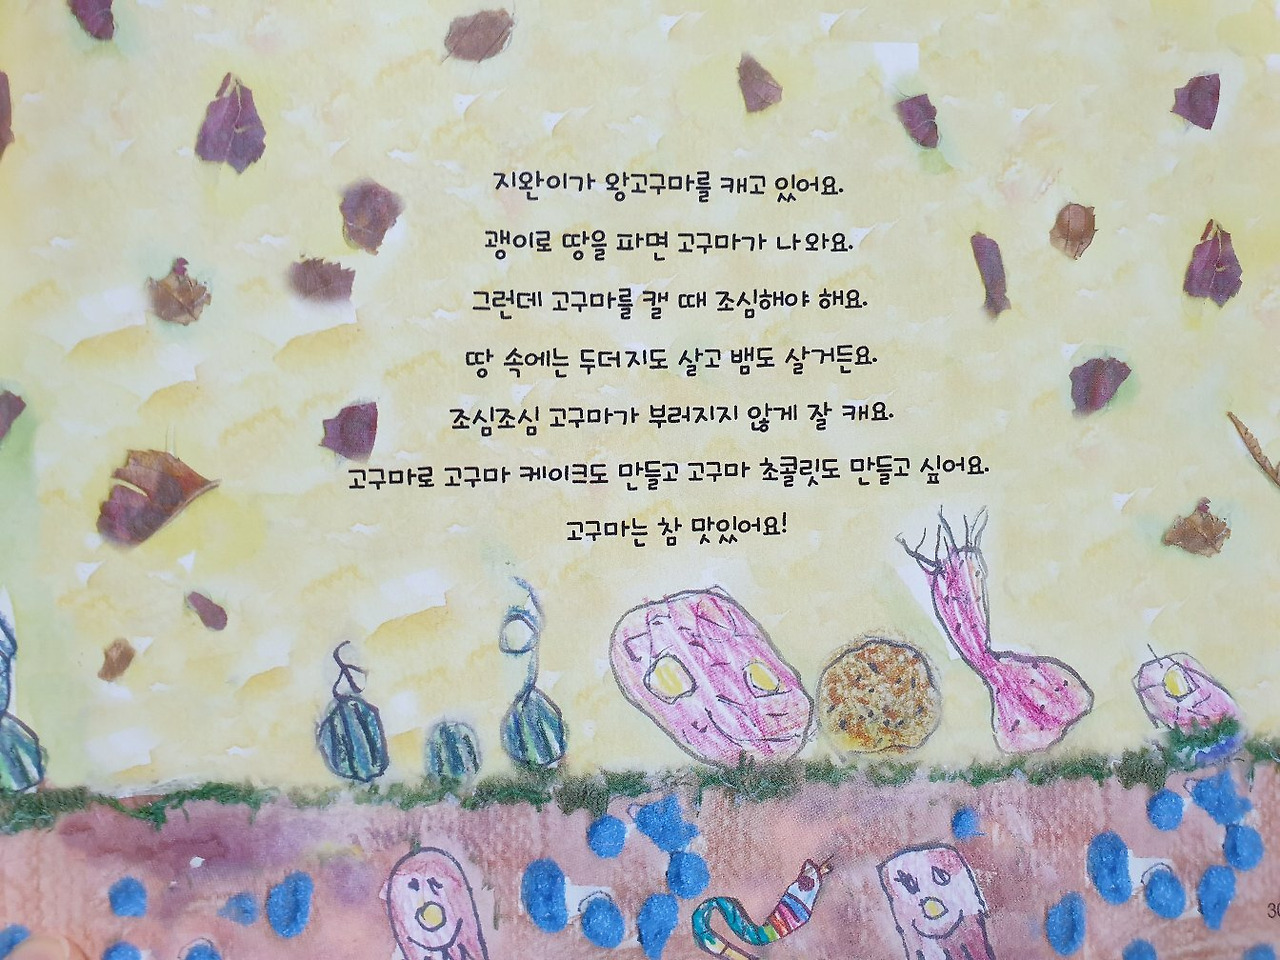 지완이가 왕고구마를 캐고 있어요.
괭이로 땅을 파면 고구마가 나와요.
그런데 고구마를 캘 때 조심해야 해요.
땅 속에는 두더지도 살고 뱀도 살거든요.
조심조심 고구마가 부러지지 않게 잘 캐요.
고구마로 고구마 케이크도 만들고 고구마 초콜릿도 만들고 싶어요.
고구마는 참 맛있어요!